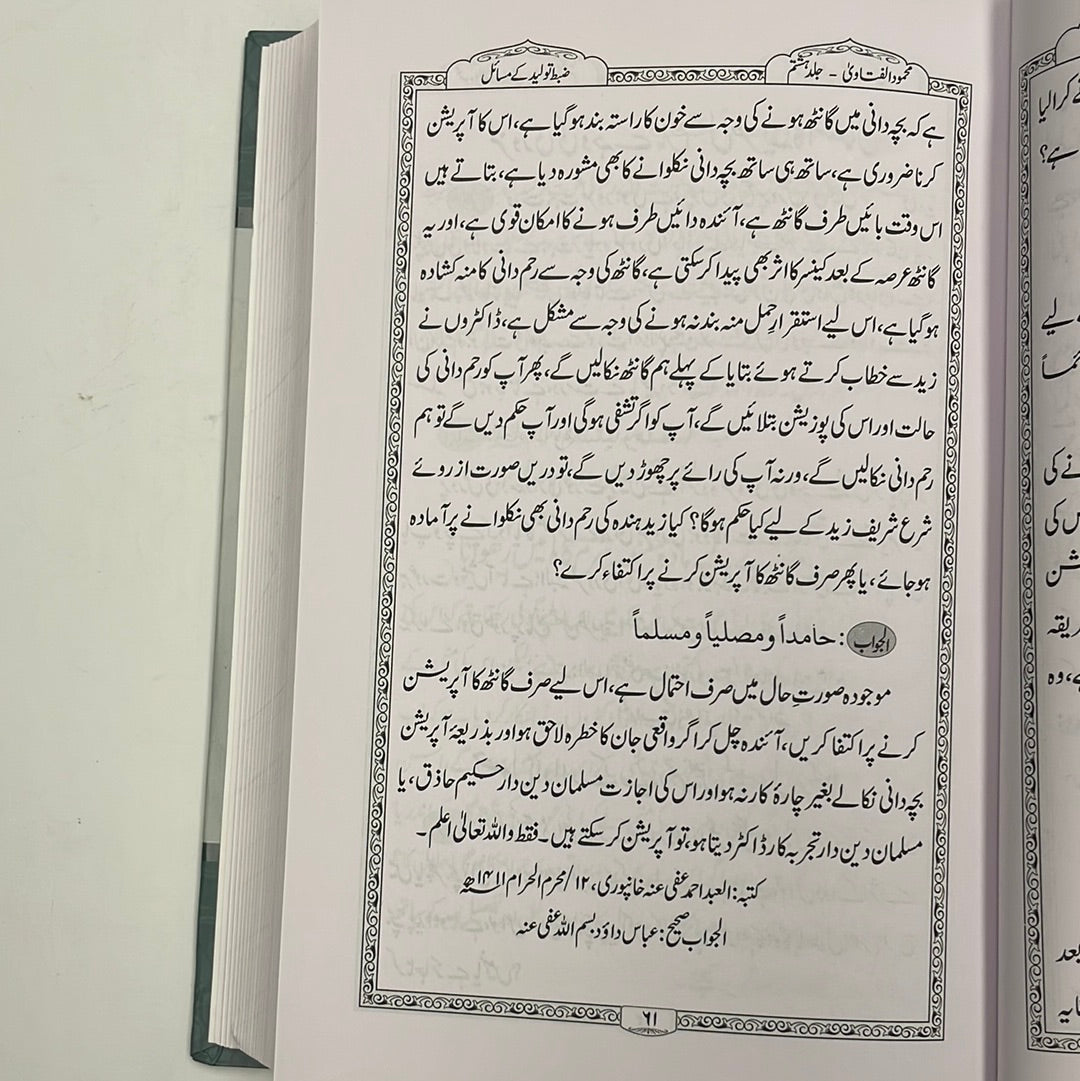 محمود الفتاویٰ - جلد ہشتم
ضبط تولید کے مسائل
ہے کہ بچہ دانی میں گانٹھ ہونے کی وجہ سے خون کا راستہ بند ہو گیا ہے، اس کا آپریشن
کرنا ضروری ہے، ساتھ ہی ساتھ بچہ دانی نکلوانے کا بھی مشورہ دیا ہے، بتاتے ہیں
اس وقت بائیں طرف گانٹھ ہے، آئندہ دائیں طرف ہونے کا امکان قوی ہے، اور یہ
گانٹھ عرصہ کے بعد کینسر کا اثر بھی پیدا کر سکتی ہے، گانٹھ کی وجہ سے رحم دانی کا منہ کشادہ
ہو گیا ہے، اس لیے استقرارِ حمل منہ بند نہ ہونے کی وجہ سے مشکل ہے، ڈاکٹروں نے
زید سے خطاب کرتے ہوئے بتایا کے پہلے ہم گانٹھ نکالیں گے، پھر آپ کو رحم دانی کی
حالت اور اس کی پوزیشن بتلائیں گے، آپ کو اگر تشفی ہوگی اور آپ حکم دیں گے تو ہم
رحم دانی نکالیں گے، ورنہ آپ کی رائے پر چھوڑ دیں گے، تو دریں صورت از روئے
شرع شریف زید کے لیے کیا حکم ہوگا؟ کیا زید ہندہ کی رحم دانی بھی نکلوانے پر آمادہ
ہو جائے، یا پھر صرف گانٹھ کا آپریشن کرنے پر اکتفاء کرے؟
الجواب: حامداً ومصلياً ومسلماً
موجودہ صورتِ حال میں صرف احتمال ہے، اس لیے صرف گانٹھ کا آپریشن
کرنے پر اکتفا کریں، آئندہ چل کر اگر واقعی جان کا خطرہ لاحق ہو اور بذریعۂ آپریشن
بچہ دانی نکالے بغیر چارۂ کار نہ ہو اور اس کی اجازت مسلمان دین دار حکیم حاذق، یا
مسلمان دین دار تجربہ کار ڈاکٹر دیتا ہو، تو آپریشن کر سکتے ہیں۔ فقط واللہ تعالیٰ اعلم۔
کتبہ: العبد احمد عفی عنہ خانپوری، ۱۲/محرم الحرام ۱۴۱۱ھ
الجواب صحیح: عباس داؤد بسم اللہ عفی عنہ
۶۱
کرالیا
ہے؟
لیے
نے کی
س کی
شن
ریقہ
ہے، وہ
بعد